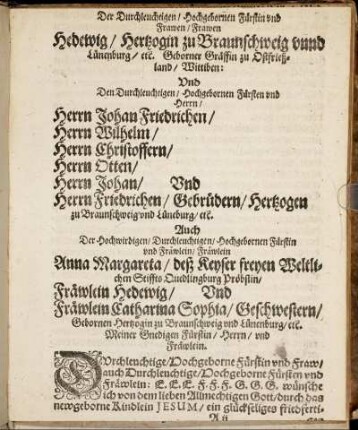 Der Durchleuchtigen / Hochgebornen Fürstin vnd
Frawen / Frawen
Hedewig / Hertzogin zu Braunschweig vnnd
Lünenburg / etc. Geborner Gräffin zu Ostfrieß-
land / Wittiben:
Vnd
Den Durchleuchtigen / Hochgebornen Fürsten vnd
Herrn /
Herrn Johan Friedrichen /
Herrn Wilhelm /
Herrn Christoffern /
Herrn Otten /
Herrn Johan / Vnd
Herrn Friedrichen / Gebrüdern / Hertzogen
zu Braunschweig vnd Lüneburg / etc.
Auch
Der Hochwirdigen / Durchleuchtigen / Hochgebornen Fürstin
vnd Fräwlein / Fräwlein
Anna Margareta / deß Keyser freyen Weltli-
chen Stiffts Quedlingburg Pröbstin /
Fräwlein Hedewig / Vnd
Fräwlein Catharina Sophia / Geschwestern /
Gebornen Hertzogin zu Braunschweig vnd Lünenburg / etc.
Meiner Gnedigen Fürstin / Herrn / vnd
Fräwlein.
DVrchleuchtige / Hochgeborne Fürstin vnd Fraw /
auch Durchleuchtige / Hochgeborne Fürsten vnd
Fräwlein: E. E. E. F. F. F. G. G. G. wünsche
ich von dem lieben Allmechtigen Gott / durch das
newgeborne Kindlein JESUM / ein glückseliges friedferti-
A ii